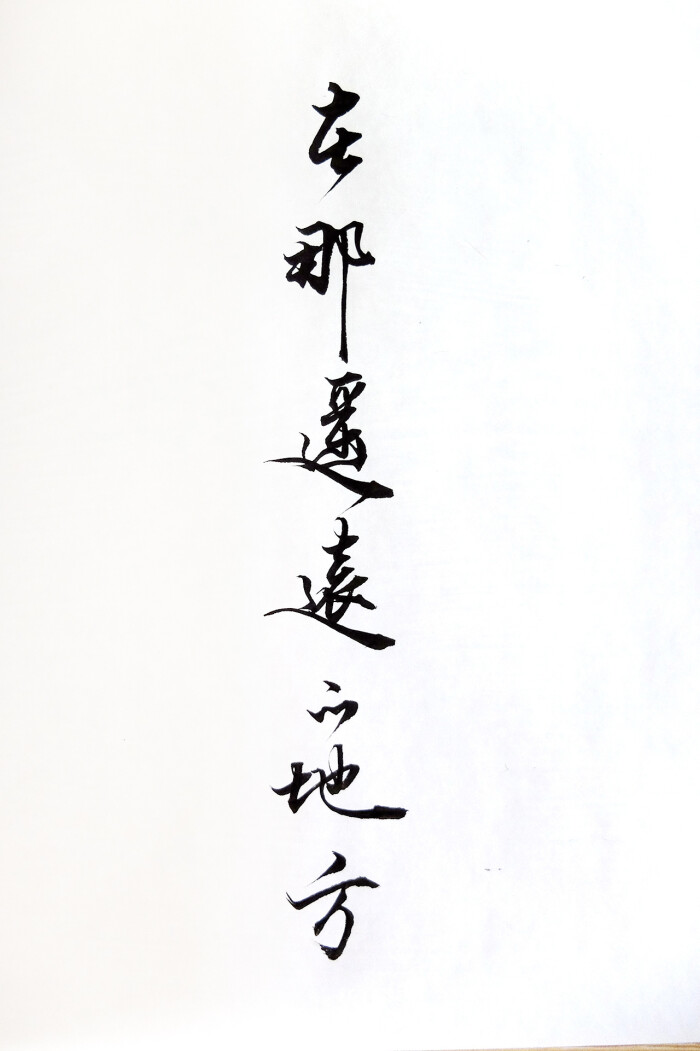 在那遥遠的地方